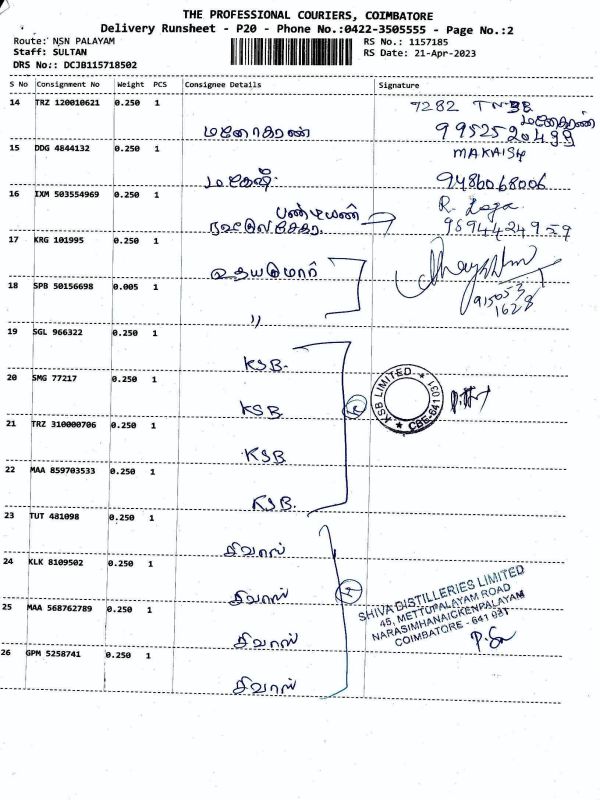 THE PROFESSIONAL COURIERS, COIMBATORE
Delivery Runsheet - P20 - Phone No.:0422-3505555 - Page No.:2
Route: NSN PALAYAM
RS No.: 1157185
Staff: SULTAN
RS Date: 21-Apr-2023
DRS No:: DCJB115718502
S No Consignment No Weight PCS Consignee Details Signature
14 TRZ 120010621 0.250 1
9282 TNBB
மனோகரன்
மனோகரன்
9952520499
15 DDG 4844132 0.250 1
மகேஷ்
9486068006
16 IXM 503554969 0.250 1
பாண்டியன்
R.
17 KRG 101995 0.250 1
உதயகுமார்
18 SPB 50156698 0.005 1
"
915053
1628
19 SGL 966322 0.250 1
KSB.
20 SMG 77217 0.250 1
KSB
KSB LIMITED ★ CBE-641 031 ★
21 TRZ 310000706 0.250 1
KSB
22 MAA 859703533 0.250 1
KSB.
23 TUT 481098 0.250 1
சிவாஸ்
24 KLK 8109502 0.250 1
சிவாஸ்
SHIVA DISTILLERIES LIMITED
45, METTUPALAYAM ROAD
NARASIMHANAICKENPALAYAM
COIMBATORE - 641 031
25 MAA 568762789 0.250 1
சிவாஸ்
26 GPM 5258741 0.250 1
சிவாஸ்